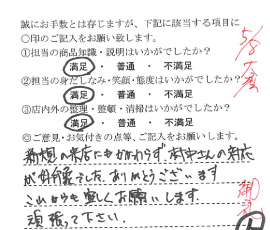 誠にお手数とは存じますが、下記に該当する項目に
〇印のご記入をお願い致します。
①担当の商品知識・説明はいかがでしたか？
満足 ・ 普通 ・ 不満足
②担当の身だしなみ・笑顔・態度はいかがでしたか？
満足 ・ 普通 ・ 不満足
③店内外の整理・整頓・清掃はいかがでしたか？
満足 ・ 普通 ・ 不満足
◎ご意見・お気付きの点等、ご記入をお願いします。
新規の来店にもかかわらず、さんの対応
が でした。ありがとうございます
これからも宜しくお願いします。
頑張って下さい。
5/8